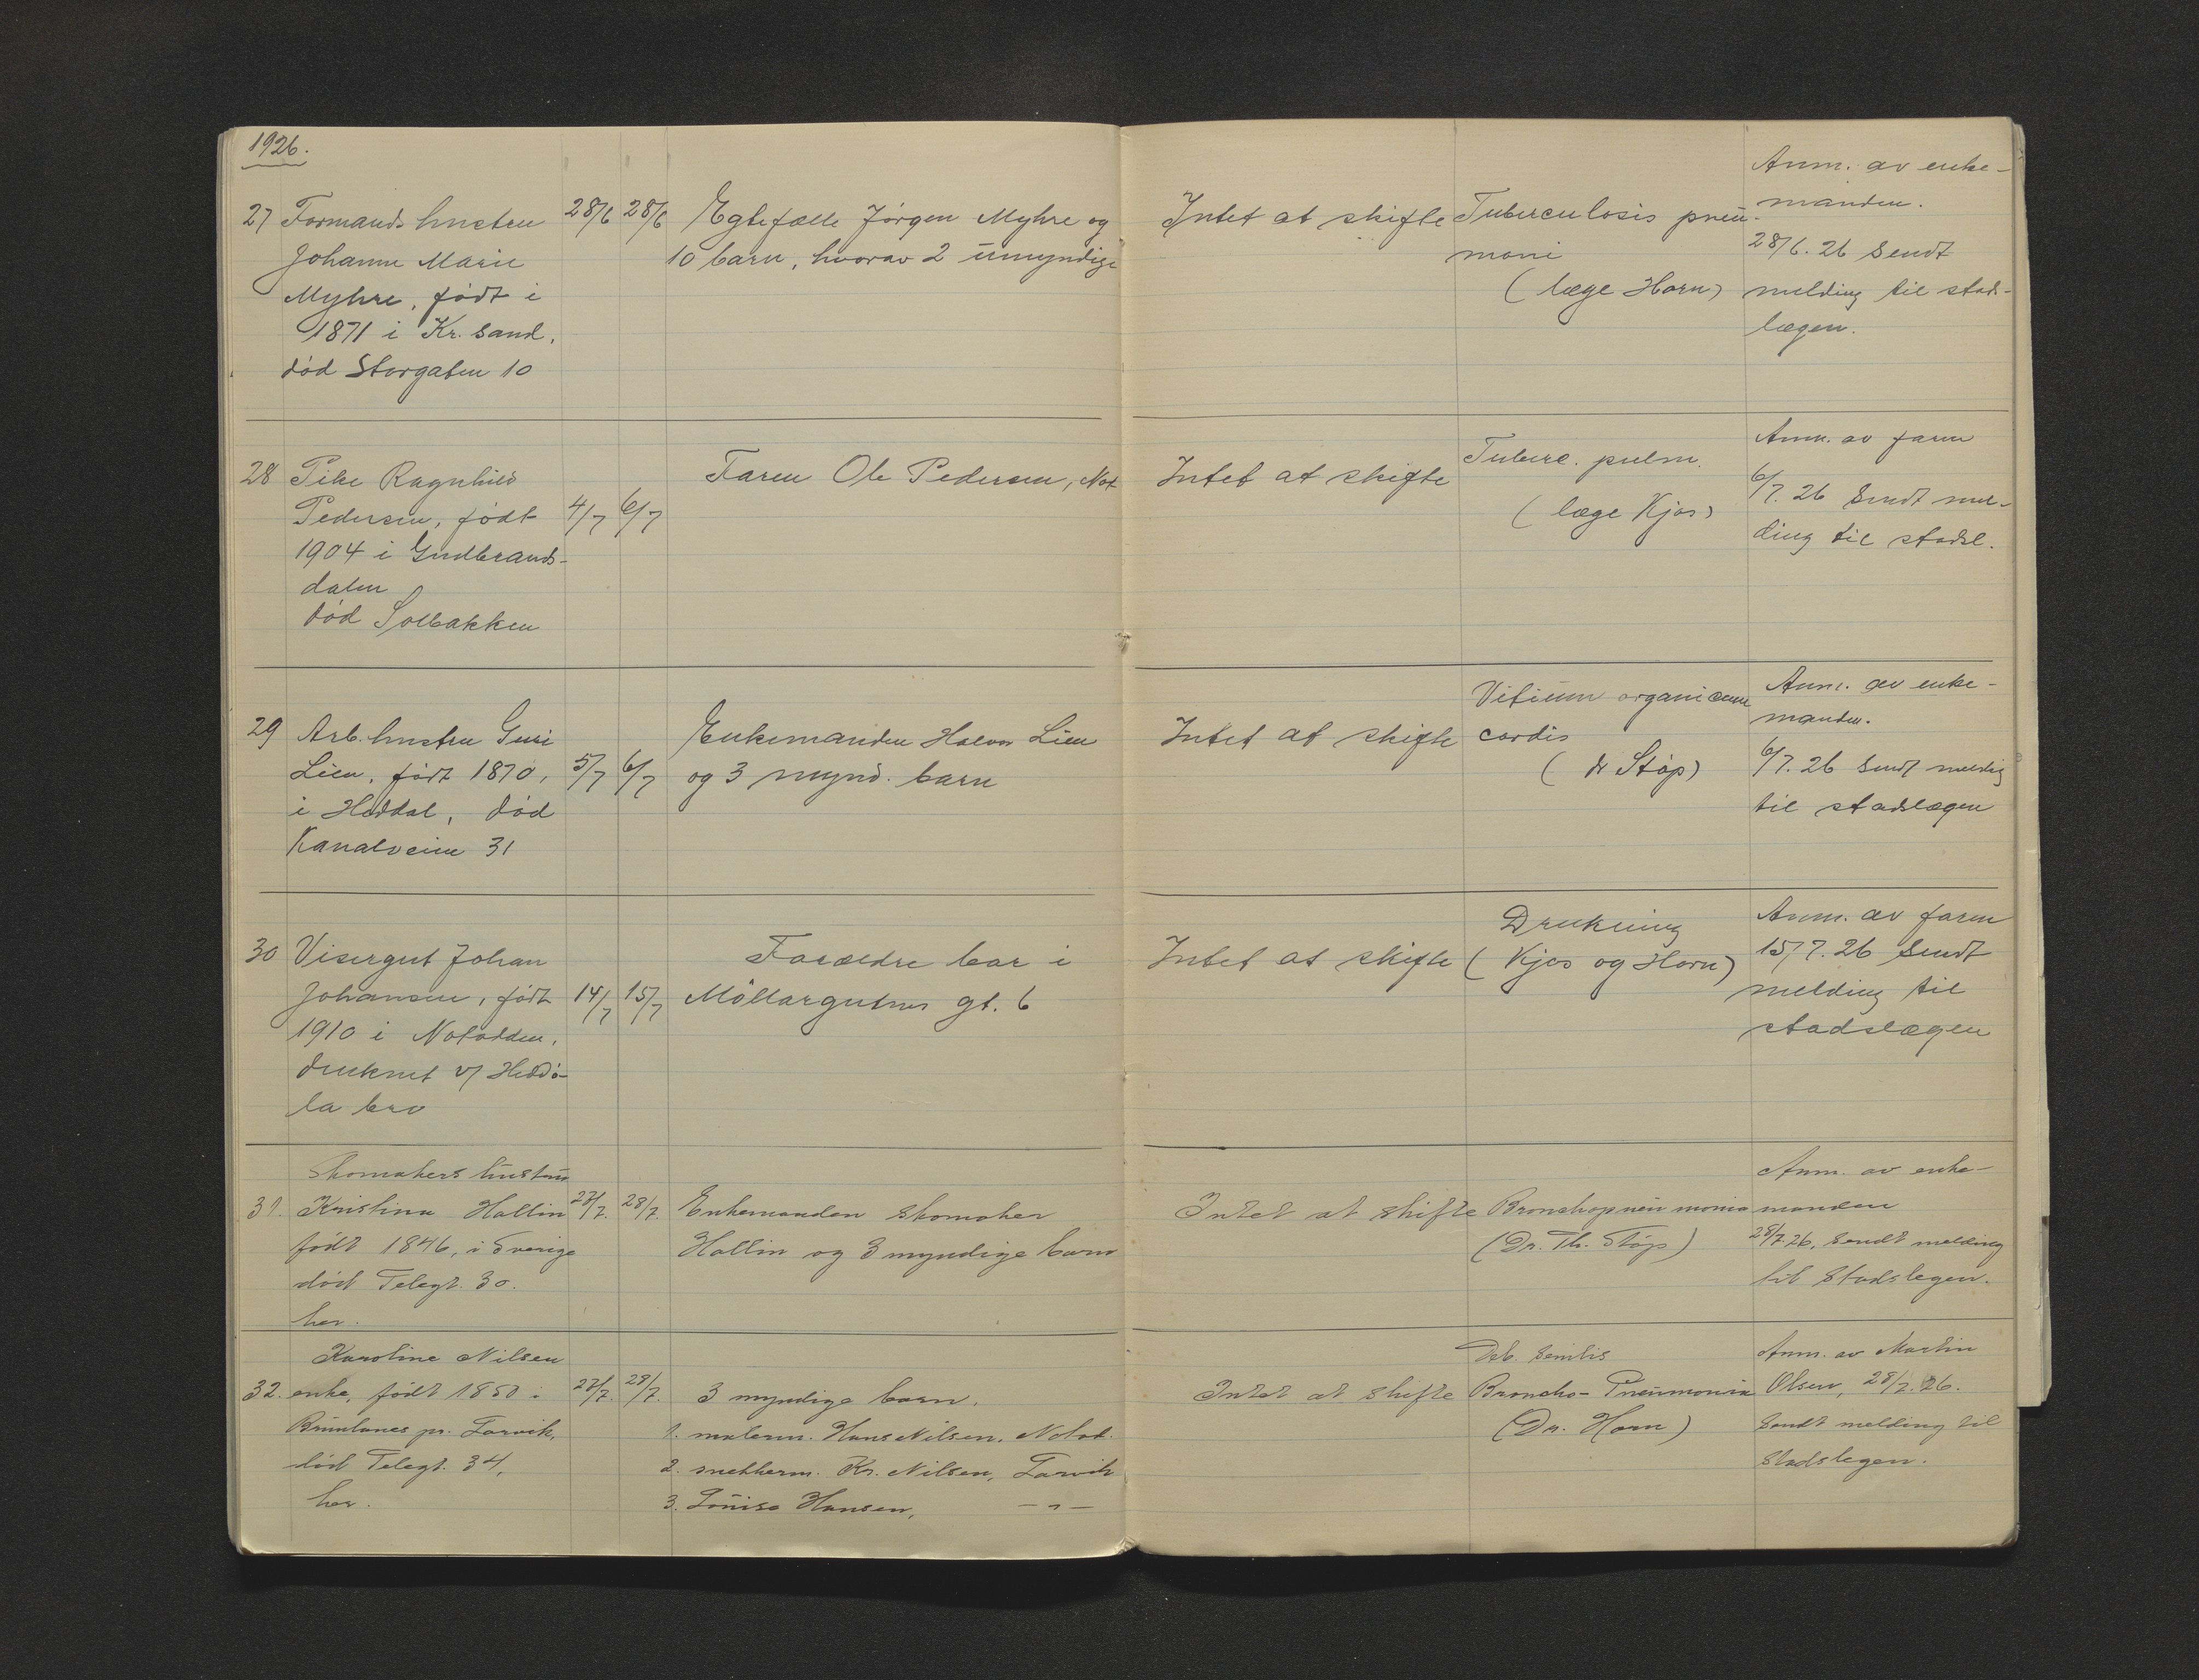 1926.
27 Formands hustru 28/6 28/6 Egtefælle Jørgen Myhre og
Johanne Marie 10 barn, hvorav 2 umyndige
Myhre, født i
1871 i Kr. sand,
død Storgaten 10
Intet at skifte Tuberculosis pneu-
moni
(læge Horn)
Anm. av enke-
manden.
28/6. 26 Sendt
melding til stads-
lægen.
28 Pike Ragnhild Faren Ole Pedersen, Not
Pedersen, født 4/7 6/7
1904 i Gudbrands-
dalen
død Solbakken
Intet at skifte
Tuberc. pulm.
(læge Kjos)
Anm. av faren
6/7. 26 Sendt mel-
ding til stadsl.
29 Arb. hustru Guri Enkemanden Halvor Lien
Lien, født 1870, 5/7 6/7 og 3 mynd. barn
i Heddal, død
Kanalveien 31
Intet at skifte
Vitium organicum
cordis
(dr Støp)
Anm. av enke-
manden.
6/7. 26 Sendt melding
til stadslægen
30 Visergut Johan Forældre bor i
Johansen, født 14/7 15/7 Møllargutens gt. 6
1910 i Notodden,
druknet v/ Heddø-
la bro
Intet at skifte
Drukning
(Kjos og Horn)
Anm. av faren
15/7. 26 Sendt
melding til
stadslægen
Skomakers hustru
31. Kristina Hallin 27/7. 28/7. Enkemanden skomaker
født 1846, i Sverige Hallin og 3 myndige barn
død Telegt. 30.
her.
Intet at skifte Bronchopneumonia
(Dr. Th. Støp)
Anm. av enke-
manden
28/7.26, Sendt melding
til Stadslegen.
Karoline Nilsen
32. enke, født 1850 i 27/7. 28/7. 3 myndige barn.
Brunlanes pr. Larvik, 1. malerm. Hans Nilsen, Notod.
død Telegt. 34, 2. snekkerm. Kr. Nilsen, Larvik
her. 3. Louise Hansen, —"—
Intet at skifte
Deb. senilis
Broncho-Pneumonia
(Dr. Horn)
Anm. av Martin
Olsen, 28/7.26.
Sendt melding til
Stadslegen.